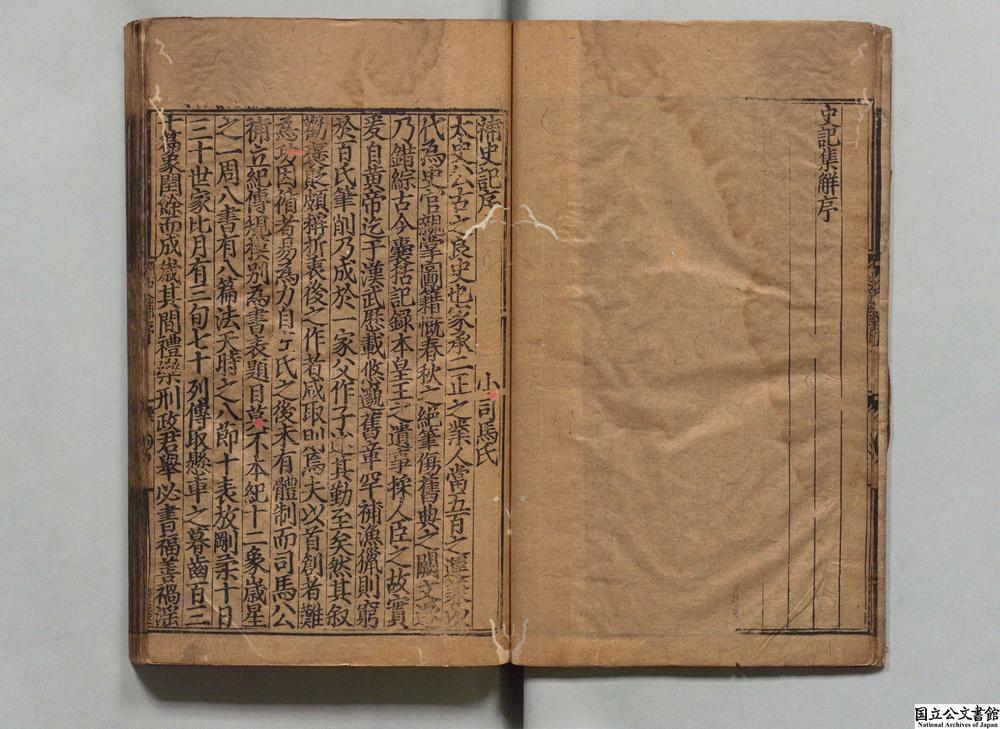 史記集解序
補史記序
小司馬氏
太史公古之良史也家承二正之業人當五百之運兼以
代為史官親掌圖籍慨春秋之絕筆傷舊典之闕文遂
乃錯綜古今囊括記録本皇王之遺事採人臣之故實
爰自黃帝迄于漢武歷載悠邈舊章罕補漁獵則窮
於百氏筆削乃成於一家父作子述其勤至矣然其叙
勸襃貶頗稱折衷後之作者咸取則焉夫以首創者難
為功因循者易為力自左氏之後未有體制而司馬公
補立紀傳規模别為書表題目莫不本紀十二象歲星
之一周八書有八篇法天時之八節十表放剛柔十日
三十世家比月有三旬七十列傳取懸車之暮齒百三
十篇象閏餘而成歲其間禮樂刑政君舉必書福善禍淫
国立公文書館
National Archives of Japan